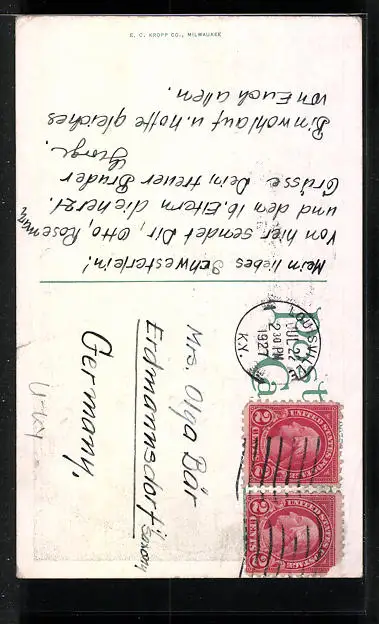 E. C. KROPP CO., MILWAUKEE
Mein liebes Schwesterlein!
Von hier sendet Dir, Otto, Rosemarie
und den lb. Eltern die herzl.
Grüsse Dein treuer Bruder
George.
Bin wohlauf u. hoffe gleiches
von Euch allen.
Post
Ca
LOUISVILLE
JUL 22
2 30 PM
1927
KY.
UNITED STATES POSTAGE
2 CENTS 2
UNITED STATES POSTAGE
2 CENTS 2
Mrs. Olga Bär
Erdmannsdorf
Saxony
Germany.
U-KY